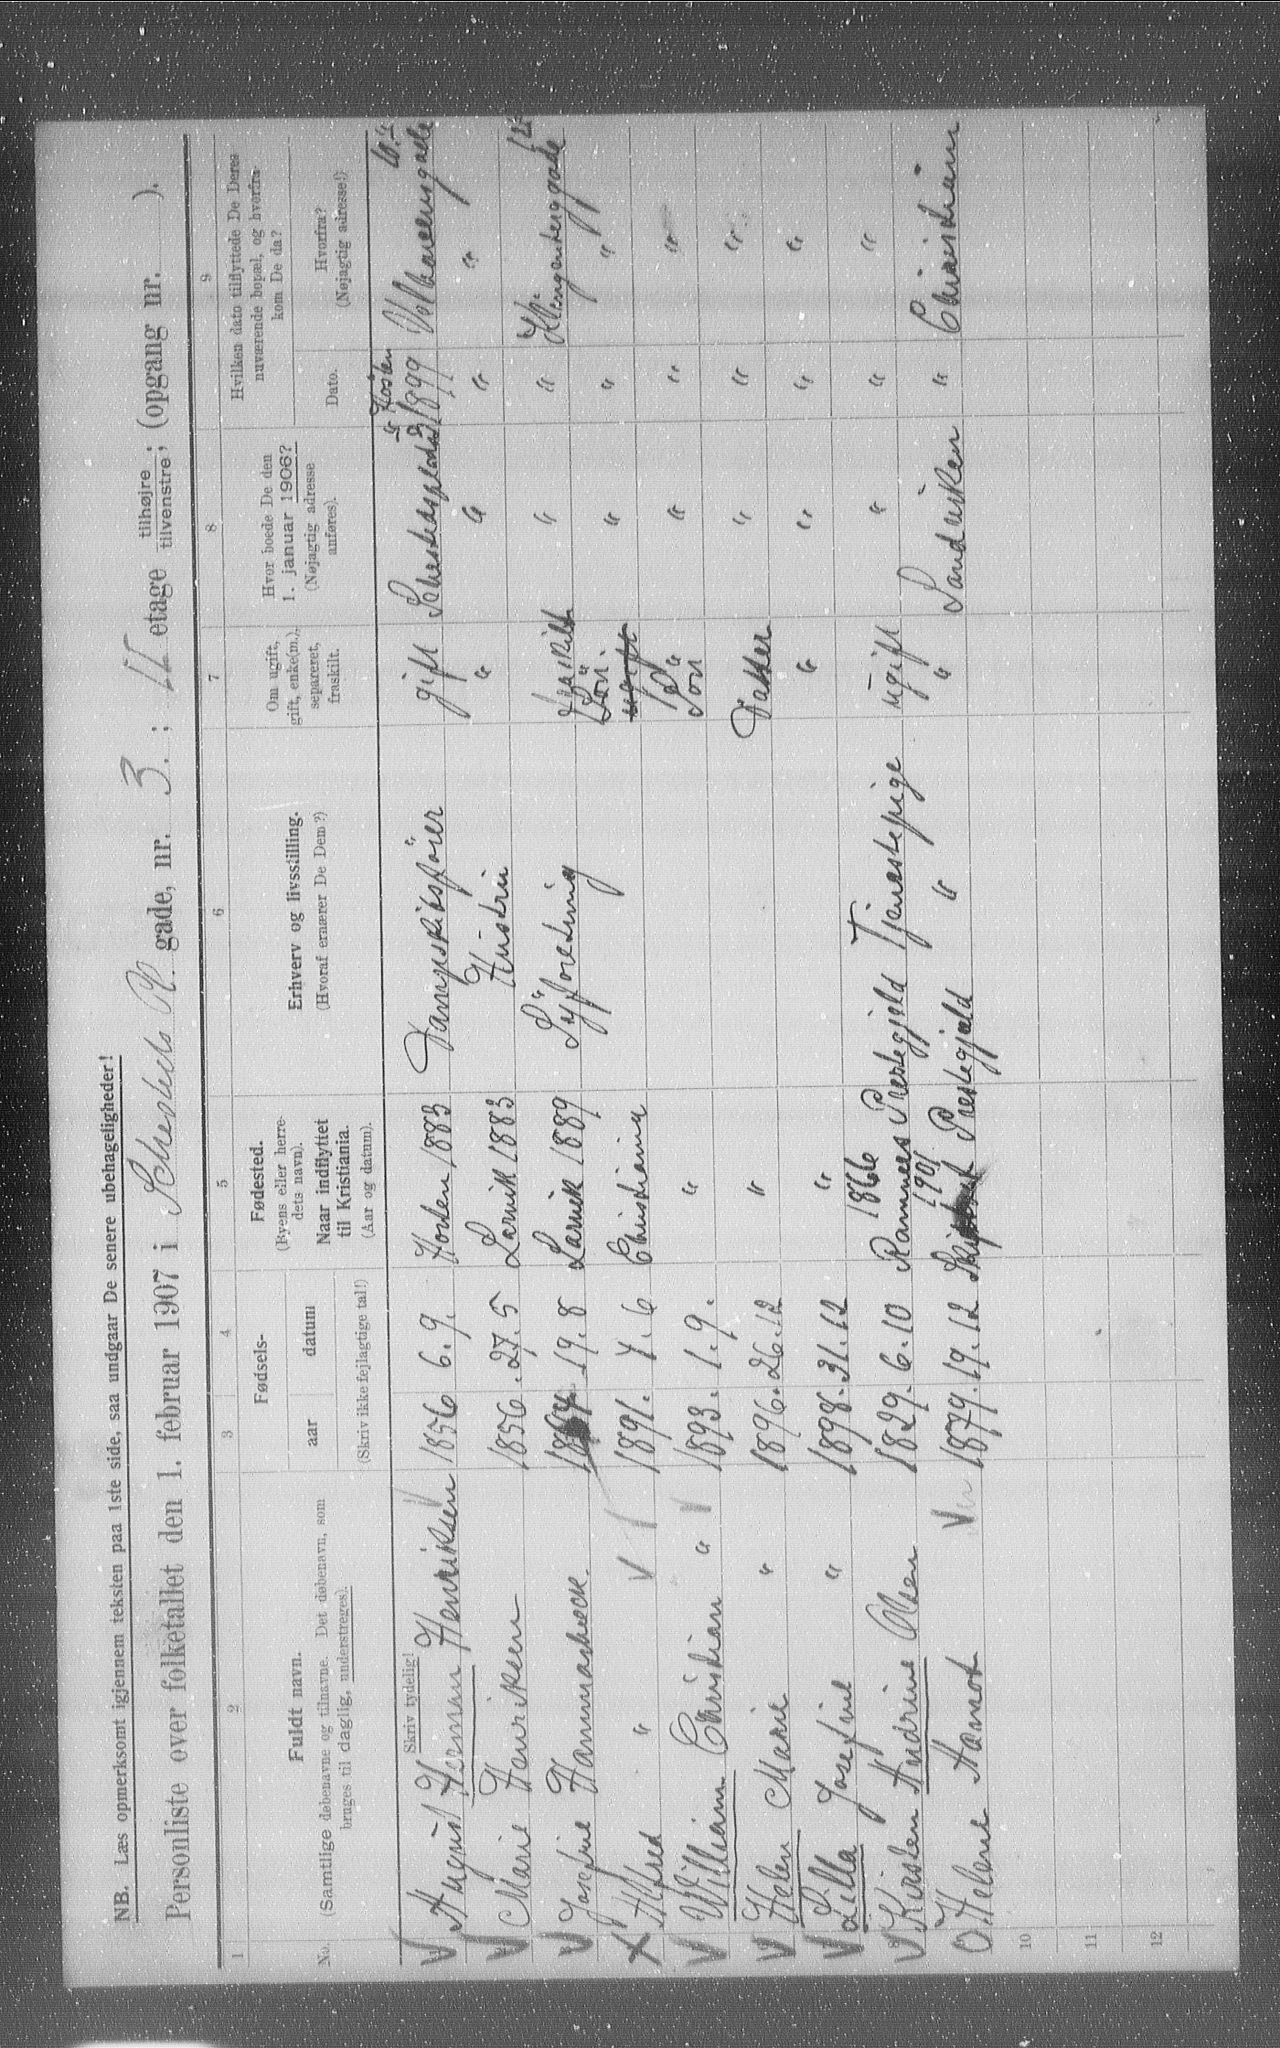 NB. Læs opmerksomt igjennem teksten paa 1ste side, saa undgaar De senere ubehageligheder!
Personliste over folketallet den 1. februar 1907 i Schesteds Pl. gade, nr. 3. ; II etage tilhøjre ; tilvenstre ; (opgang nr. ).
1 2 3 4 5 6 7 8 9
No.
Fuldt navn.
(Samtlige døbenavne og tilnavne. Det døbenavn, som
bruges til daglig, understreges).
Fødsels-
aar datum
(Skriv ikke fejlagtige tal!)
Fødested.
(Byens eller herre-
dets navn).
Naar indflyttet
til Kristiania.
(Aar og datum).
Erhverv og livsstilling.
(Hvoraf ernærer De Dem?)
Om ugift,
gift, enke(m.),
separeret,
fraskilt.
Hvor boede De den
1. januar 1906?
(Nøjagtig adresse
anføres).
Hvilken dato tilflyttede De Deres
nuværende bopæl, og hvorfra
kom De da?
Dato.
Hvorfra?
(Nøjagtig adresse!)
Skriv tydelig!
August Herman Henriksen 1856 6. 9. Horten 1883 Dampskibsfører gift Schestedsplads 3 Høsten 1899
Marie Henriksen 1856. 27. 5 Larvik 1883 Hustru " " " "
Josefine Hammasbeck. 19. 8 Larvik 1889 Syforetning fraskilt " " Klingenberggade
Alfred " 1891. 7. 6 Christiania Søn " " "
William Christian " 1893. 1. 9. " Søn " " "
Helen Marie " 1896. 26. 12 " Datter " " "
Lilla Josefine " 1898. 31. 12 " " " " "
8 Kirsten Andrine Olsen 1829. 6. 10 1866 Ramnes Prestegjeld Tjenestepige ugift " " "
Helene Aamot 1879. 19. 12 1901 Prestegjeld " " Sandviken " Christiania
10
11
12